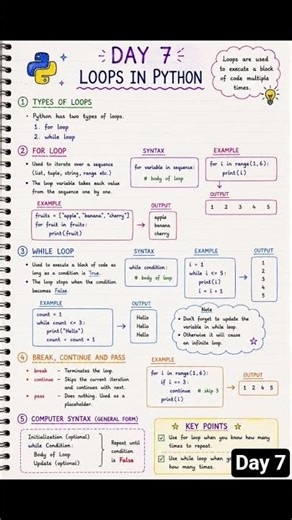 DAY 7
LOOPS IN PYTHON
Loops are used
to execute a block
of code multiple
times.
1 TYPES OF LOOPS
• Python has two types of loops.
1. for loop
2. while loop
2 FOR LOOP
• Used to iterate over a sequence
(list, tuple, string, range etc.)
• The loop variable takes each value
from the sequence one by one.
SYNTAX
for variable in sequence:
# body of loop
EXAMPLE
for i in range(1,6):
print(i)
OUTPUT
1 2 3 4 5
EXAMPLE
fruits = ["apple", "banana", "cherry"]
for fruit in fruits:
print(fruit)
OUTPUT
apple
banana
cherry
3 WHILE LOOP
• Used to execute a block of code as
long as a condition is True.
• The loop stops when the condition
becomes False.
SYNTAX
while condition:
# body of loop
EXAMPLE
i = 1
while i <= 5:
print(i)
i = i + 1
OUTPUT
1
2
3
4
5
EXAMPLE
count = 1
while count <= 3:
print("Hello")
count = count + 1
OUTPUT
Hello
Hello
Hello
Note
• Don't forget to update the
variable in while loop.
• Otherwise it will cause
an infinite loop.
4 BREAK, CONTINUE AND PASS
• break - Terminates the loop.
• continue - Skips the current iteration
and continues with next.
• pass - Does nothing. Used as a
placeholder.
EXAMPLE
for i in range(1,6):
if i == 3:
continue # skip 3
print(i)
OUTPUT
1 2 4 5
5 COMPUTER SYNTAX (GENERAL FORM)
Initialization (optional)
while Condition:
Body of Loop
Update (optional)
Repeat until
condition
is False
KEY POINTS
Use for loop when you know how many
times to repeat.
Use while loop when yo
how many times.
Day 7